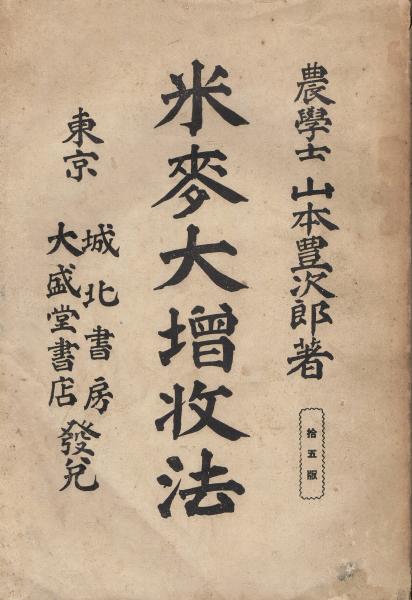 農學士 山本豊次郎著
拾五版
米麥大增收法
東京
城北書房
大盛堂書店
發兌